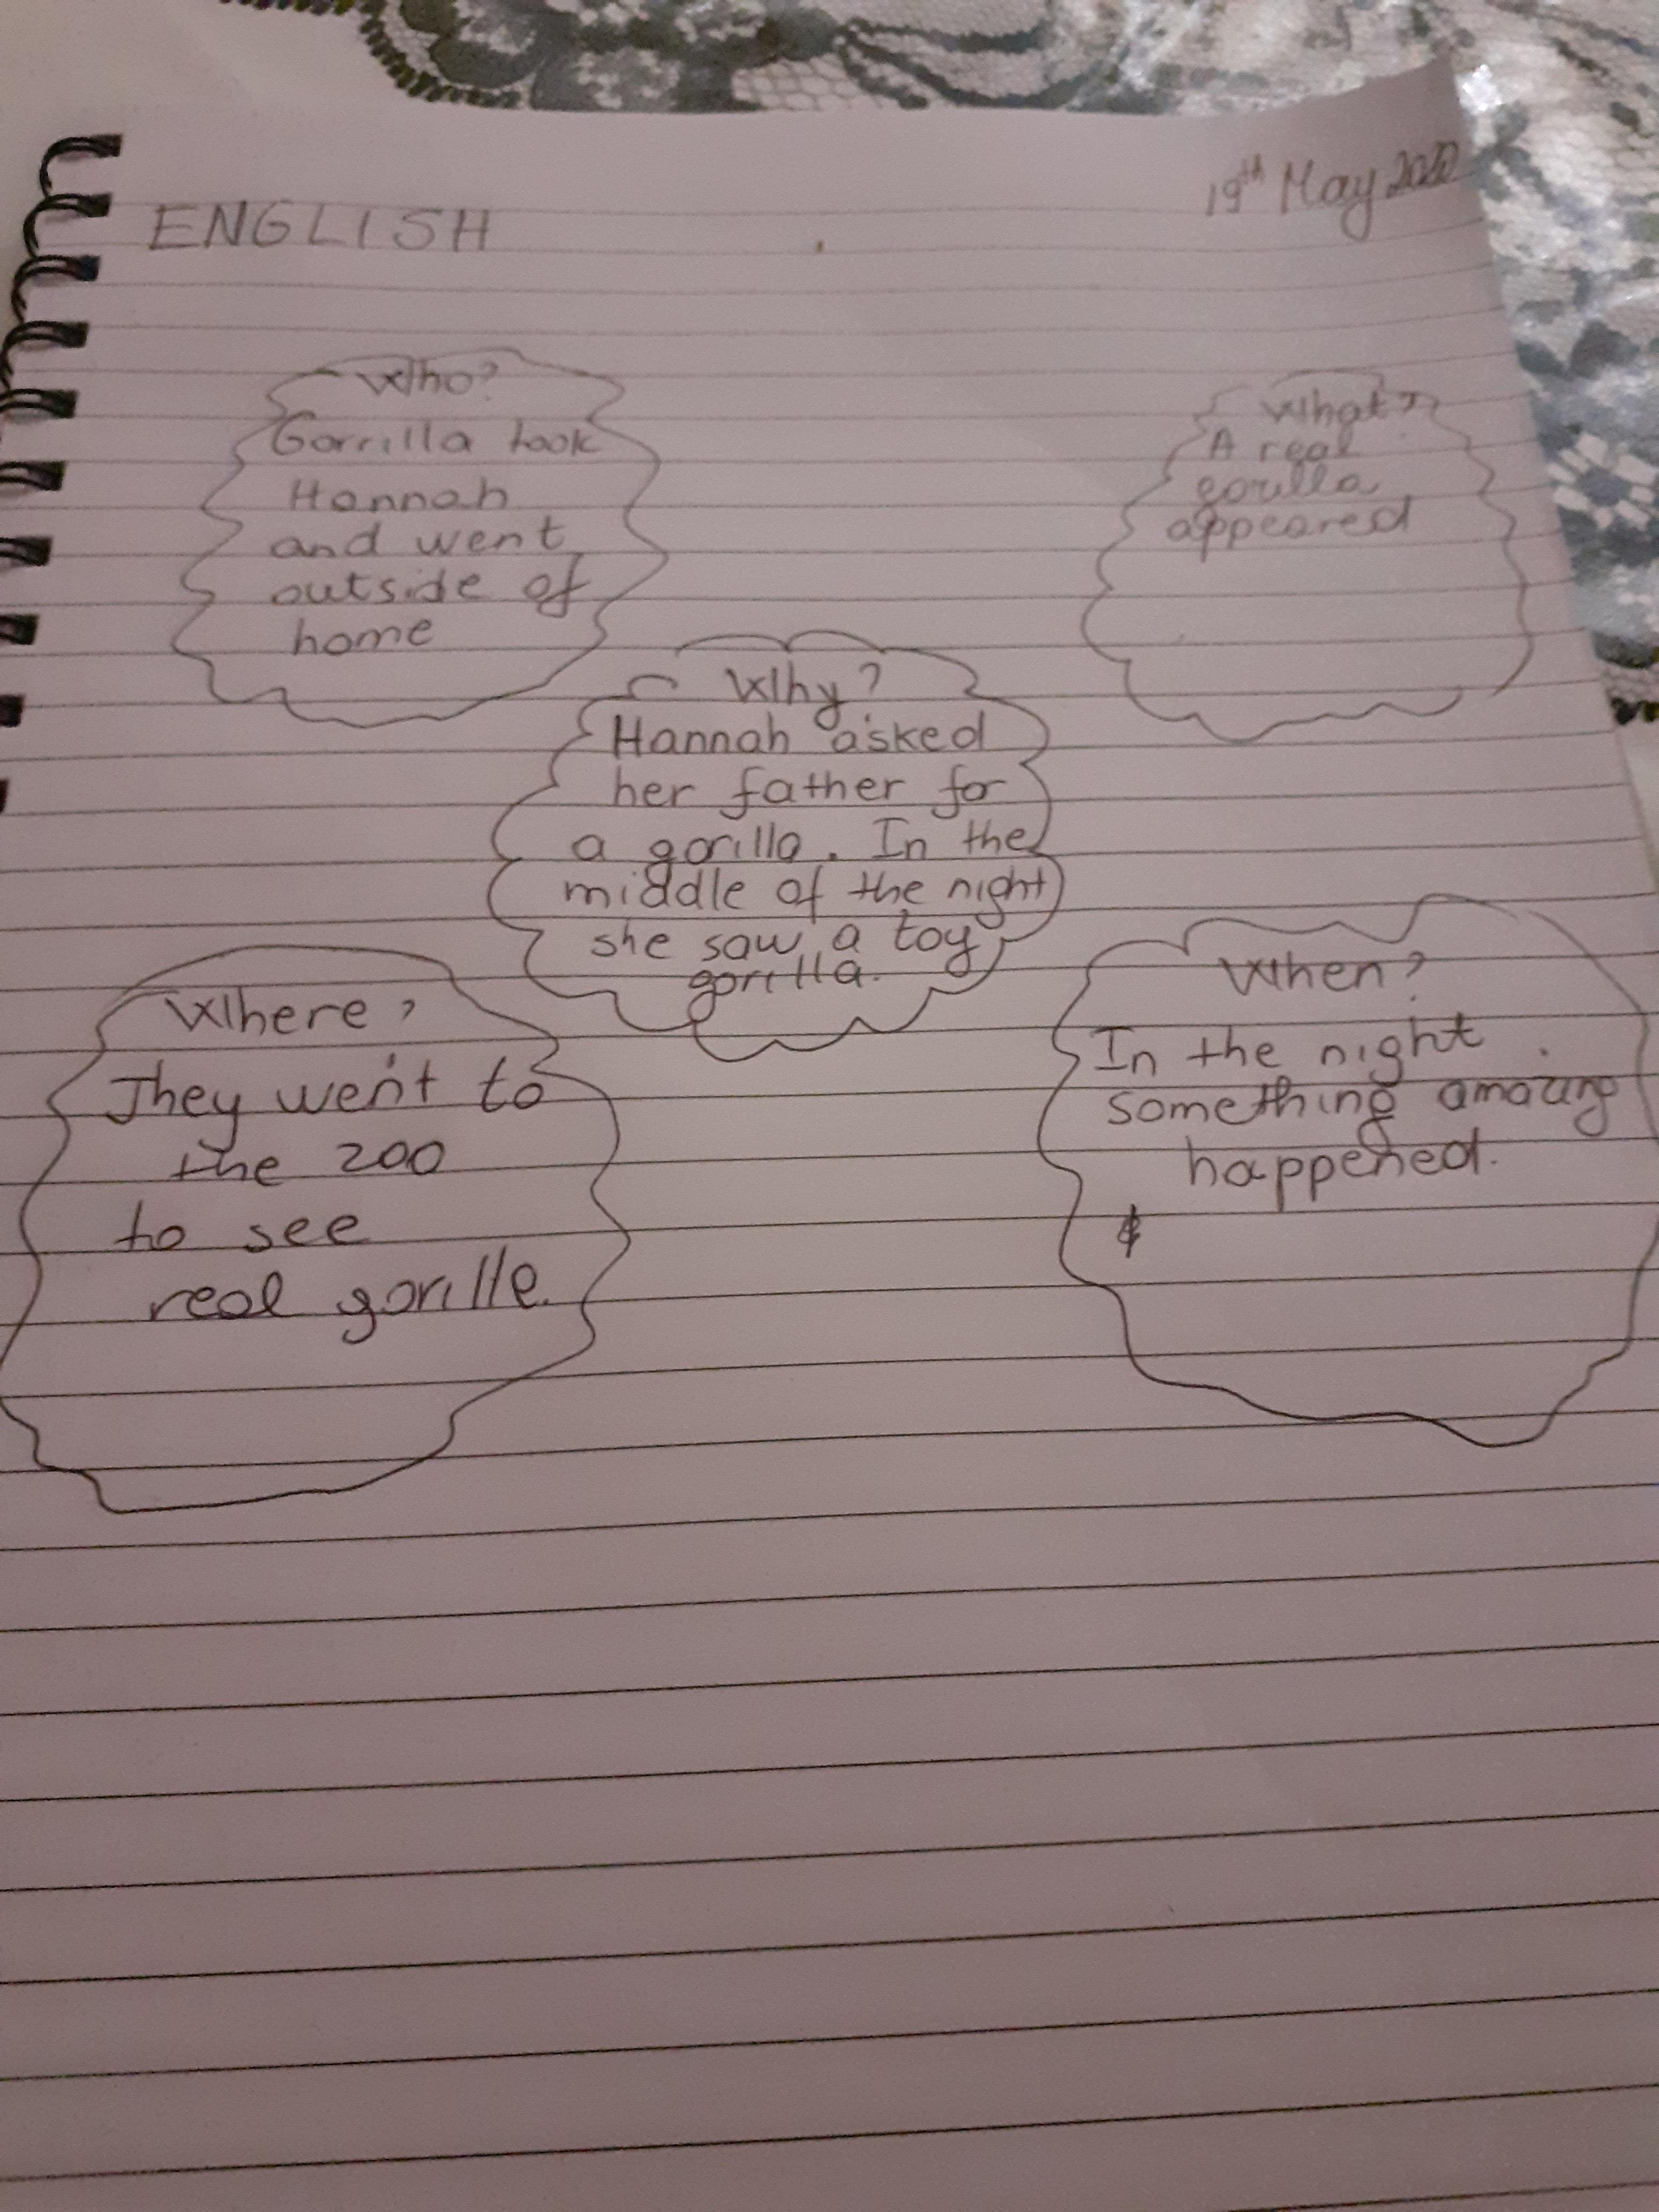 ENGLISH
19th May 2020
Who?
Gorrilla took
Hannah
and went
outside of
home
What?
A real
gorilla
appeared
Why?
Hannah asked
her father for
a gorilla. In the
middle of the night
she saw a toy
gorilla.
Where?
They went to
the zoo
to see
real gorille.
When?
In the night
something amazing
happened.